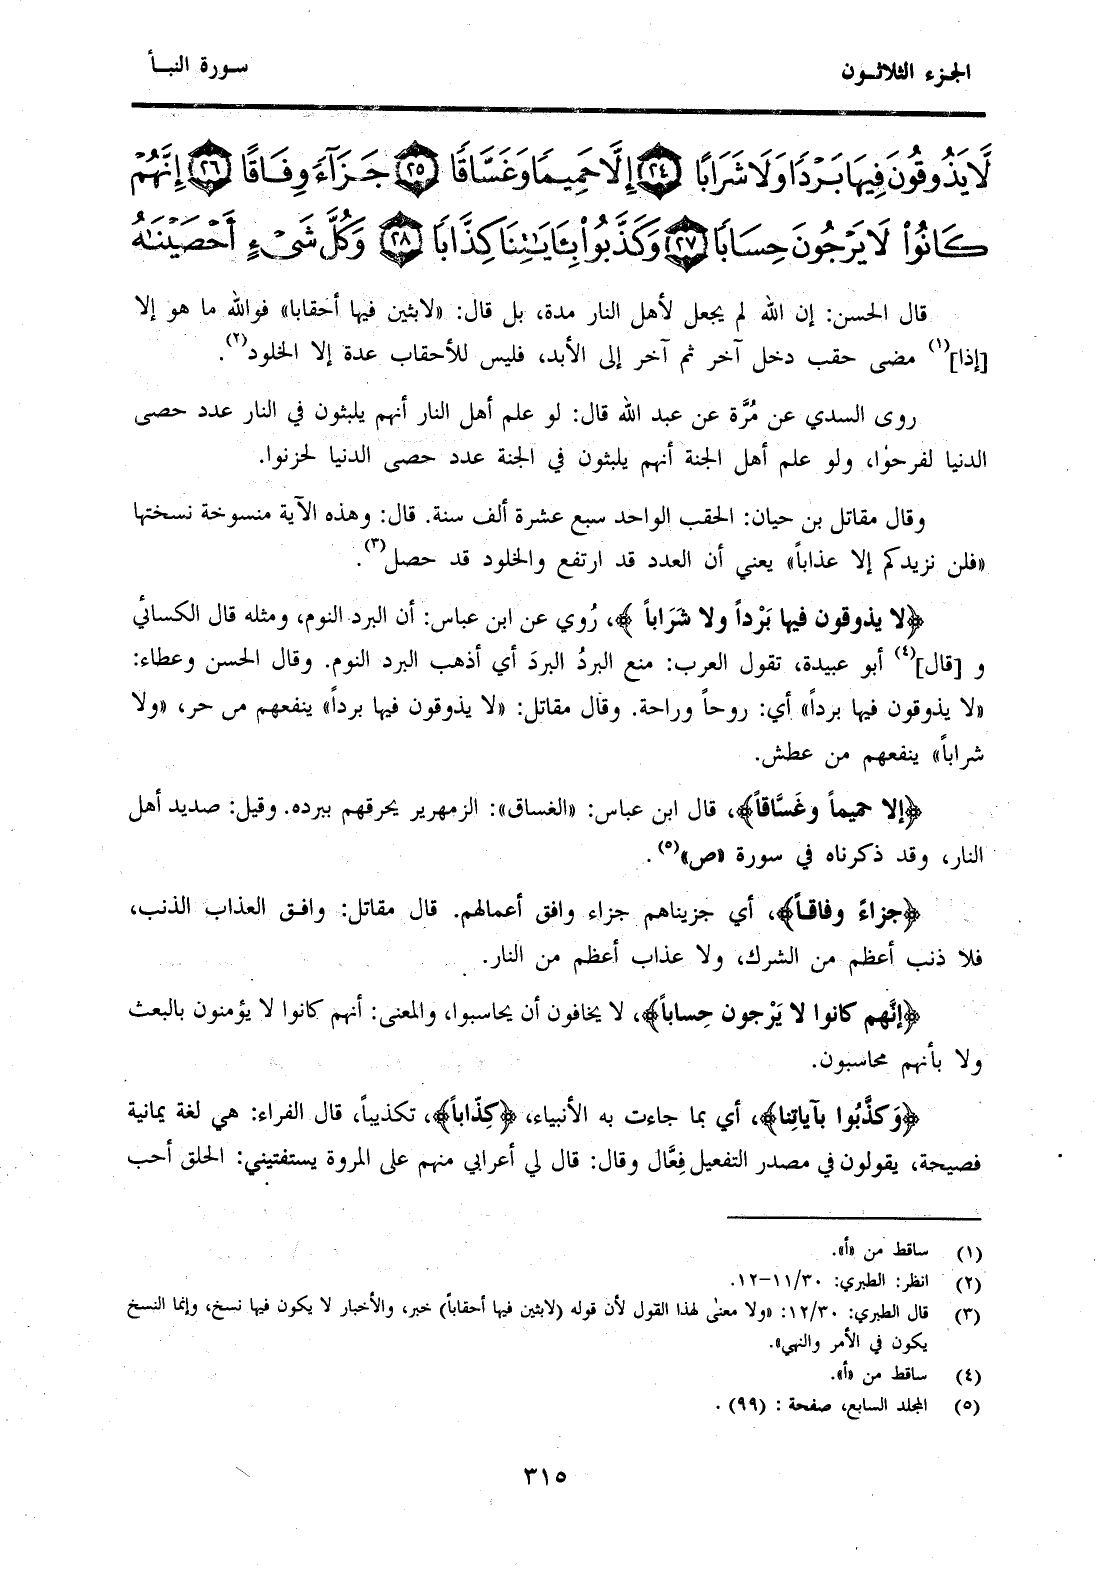 الجزء الثلاثون
سورة النبأ
لَّا يَذُوقُونَ فِيهَا بَرْدًا وَلَا شَرَابًا ﴿٢٤﴾ إِلَّا حَمِيمًا وَغَسَّاقًا ﴿٢٥﴾ جَزَآءً وِفَاقًا ﴿٢٦﴾ إِنَّهُمْ
كَانُوا۟ لَا يَرْجُونَ حِسَابًا ﴿٢٧﴾ وَكَذَّبُوا۟ بِـَٔايَـٰتِنَا كِذَّابًا ﴿٢٨﴾ وَكُلَّ شَىْءٍ أَحْصَيْنَـٰهُ
قال الحسن: إن الله لم يجعل لأهل النار مدة، بل قال: «لابثين فيها أحقابا» فوالله ما هو إلا
[إذا](١) مضى حقب دخل آخر ثم آخر إلى الأبد، فليس للأحقاب عدة إلا الخلود(٢).
روى السدي عن مُرَّة عن عبد الله قال: لو علم أهل النار أنهم يلبثون في النار عدد حصى
الدنيا لفرحوا، ولو علم أهل الجنة أنهم يلبثون في الجنة عدد حصى الدنيا لحزنوا.
وقال مقاتل بن حيان: الحقب الواحد سبع عشرة ألف سنة. قال: وهذه الآية منسوخة نسختها
«فلن نزيدكم إلا عذاباً» يعني أن العدد قد ارتفع والخلود قد حصل(٣).
﴿لا يذوقون فيها بَرْداً ولا شَرَاباً﴾، رُوي عن ابن عباس: أن البرد النوم، ومثله قال الكسائي
و [قال](٤) أبو عبيدة، تقول العرب: منع البردُ البردَ أي أذهب البرد النوم. وقال الحسن وعطاء:
«لا يذوقون فيها برداً» أي: روحاً وراحة. وقال مقاتل: «لا يذوقون فيها برداً» ينفعهم من حر، «ولا
شراباً» ينفعهم من عطش.
﴿إلا حميماً وغَسَّاقاً﴾، قال ابن عباس: «الغساق»: الزمهرير يحرقهم ببرده. وقيل: صديد أهل
النار، وقد ذكرناه في سورة «ص»(٥).
﴿جزاءً وفاقاً﴾، أي جزيناهم جزاء وافق أعمالهم. قال مقاتل: وافق العذاب الذنب،
فلا ذنب أعظم من الشرك، ولا عذاب أعظم من النار.
﴿إنَّهم كانوا لا يَرْجون حِساباً﴾، لا يخافون أن يحاسبوا، والمعنى: أنهم كانوا لا يؤمنون بالبعث
ولا بأنهم محاسبون.
﴿وَكذَّبُوا بآياتِنا﴾، أي بما جاءت به الأنبياء، ﴿كِذّاباً﴾، تكذيباً، قال الفراء: هي لغة يمانية
فصيحة، يقولون في مصدر التفعيل فِعَّال وقال: قال لي أعرابي منهم على المروة يستفتيني: الحلق أحب
(١) ساقط من «أ».
(٢) انظر: الطبري: ٣٠/١١-١٢.
(٣) قال الطبري: ٣٠/١٢: «ولا معنى لهذا القول لأن قوله (لابثين فيها أحقاباً) خبر، والأخبار لا يكون فيها نسخ، وإنما النسخ
يكون في الأمر والنهي».
(٤) ساقط من «أ».
(٥) المجلد السابع، صفحة : (٩٩) .
٣١٥